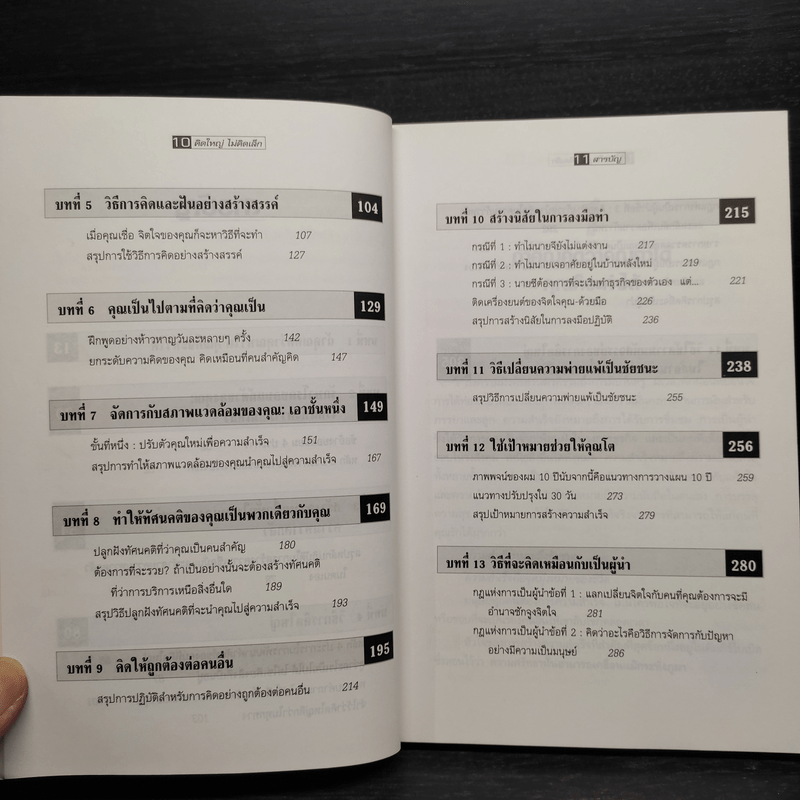 10 คิดใหญ่ ไม่คิดเล็ก
บทที่ 5 วิธีการคิดและฝันอย่างสร้างสรรค์ 104
เมื่อคุณเชื่อ จิตใจของคุณก็จะหาวิธีที่จะทำ 107
สรุปการใช้วิธีการคิดอย่างสร้างสรรค์ 127
บทที่ 6 คุณเป็นไปตามที่คิดว่าคุณเป็น 129
ฝึกพูดอย่างห้าวหาญวันละหลายๆ ครั้ง 142
ยกระดับความคิดของคุณ คิดเหมือนที่คนสำคัญคิด 147
บทที่ 7 จัดการกับสภาพแวดล้อมของคุณ: เอาชั้นหนึ่ง 149
ขั้นที่หนึ่ง : ปรับตัวคุณใหม่เพื่อความสำเร็จ 151
สรุปการทำให้สภาพแวดล้อมของคุณนำคุณไปสู่ความสำเร็จ 167
บทที่ 8 ทำให้ทัศนคติของคุณเป็นพวกเดียวกับคุณ 169
ปลูกฝังทัศนคติที่ว่าคุณเป็นคนสำคัญ 180
ต้องการที่จะรวย? ถ้าเป็นอย่างนั้นจะต้องสร้างทัศนคติ
ที่ว่าการบริการเหนือสิ่งอื่นใด 189
สรุปวิธีปลูกฝังทัศนคติที่จะนำคุณไปสู่ความสำเร็จ 193
บทที่ 9 คิดให้ถูกต้องต่อคนอื่น 195
สรุปการปฏิบัติสำหรับการคิดอย่างถูกต้องต่อคนอื่น 214
11 สารบัญ
บทที่ 10 สร้างนิสัยในการลงมือทำ 215
กรณีที่ 1 : ทำไมนายจียังไม่แต่งงาน 217
กรณีที่ 2 : ทำไมนายเจอาศัยอยู่ในบ้านหลังใหม่ 219
กรณีที่ 3 : นายซีต้องการที่จะเริ่มทำธุรกิจของตัวเอง แต่... 221
ติดเครื่องยนต์ของจิตใจคุณ-ด้วยมือ 226
สรุปการสร้างนิสัยในการลงมือปฏิบัติ 236
บทที่ 11 วิธีเปลี่ยนความพ่ายแพ้เป็นชัยชนะ 238
สรุปวิธีการเปลี่ยนความพ่ายแพ้เป็นชัยชนะ 255
บทที่ 12 ใช้เป้าหมายช่วยให้คุณโต 256
ภาพพจน์ของผม 10 ปีนับจากนี้คือแนวทางการวางแผน 10 ปี 259
แนวทางปรับปรุงใน 30 วัน 273
สรุปเป้าหมายการสร้างความสำเร็จ 279
บทที่ 13 วิธีที่จะคิดเหมือนกับเป็นผู้นำ 280
กฎแห่งการเป็นผู้นำข้อที่ 1 : แลกเปลี่ยนจิตใจกับคนที่คุณต้องการจะมี
อำนาจชักจูงจิตใจ 281
กฎแห่งการเป็นผู้นำข้อที่ 2 : คิดว่าอะไรคือวิธีการจัดการกับปัญหา
อย่างมีความเป็นมนุษย์ 286